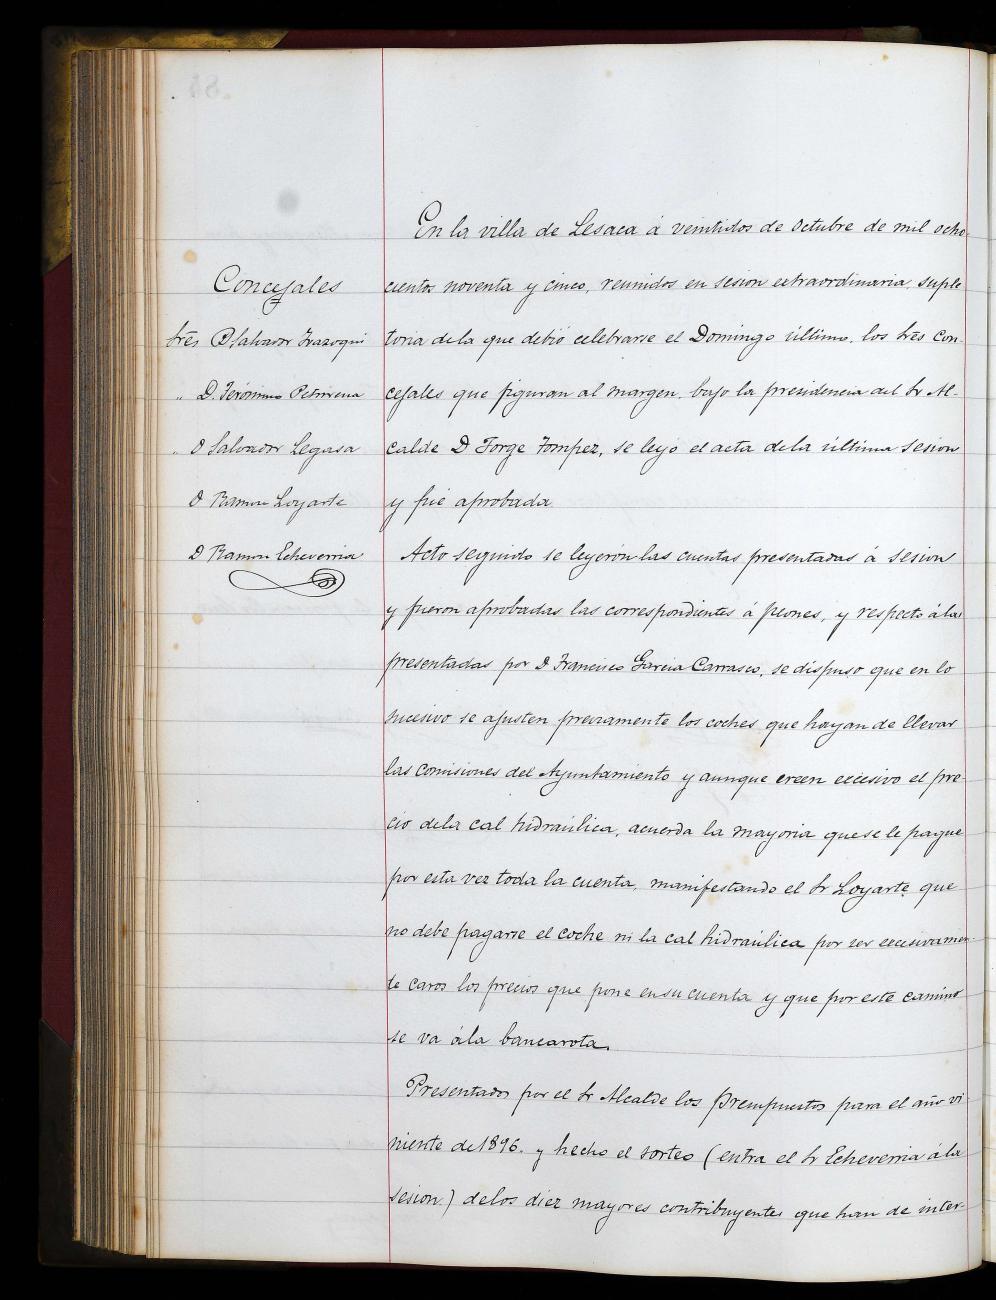 Concejales
tres D Salvador Irazoqui
" D. Jerónimo Petrirena
" D Salvador Legasa
D Ramon Loyarte
D Ramon Echeverria
En la villa de Lesaca á veintidos de Octubre de mil ocho-
cientos noventa y cinco, reunidos en sesion extraordinaria, suple
toria de la que debió celebrarse el Domingo último, los tres con-
cejales que figuran al margen, bajo la presidencia del Sr Al-
calde D Jorge Tompez, se leyó el acta de la última sesion
y fué aprobada
Acto seguido se leyeron las cuentas presentadas á sesion
y fueron aprobadas las correspondientes á peones, y respecto á las
presentadas por D Francisco Garcia Carrasco, se dispuso que en lo
sucesivo se ajusten previamente los coches que hayan de llevar
las comisiones del Ayuntamiento y aunque creen excesivo el pre-
cio de la cal hidraúlica, acuerda la mayoria que se le pague
por esta vez toda la cuenta, manifestando el Sr Loyarte que
no debe pagarse el coche ni la cal hidraúlica por ser excesivamen-
te caros los precios que pone en su cuenta y que por este camino
se va á la bancarota.
Presentados por el Sr Alcalde los Presupuestos para el año vi-
niente de 1896. y hecho el sorteo (entra el Sr Echeverria á la
sesion) de los diez mayores contribuyentes que han de inter-